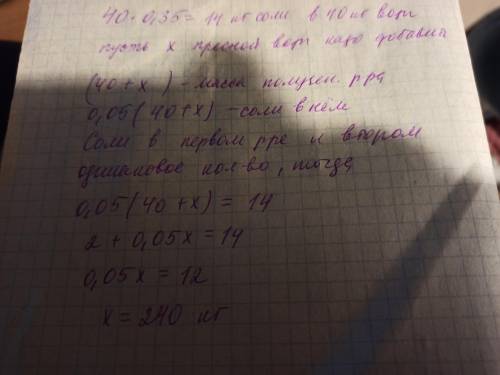 40 · 0,35 = 14 кг соли в 40 кг воды
пусть х пресной воды надо добавить
(40 + х) - масса получен. р-ра
0,05(40+х) - соли в нём
Соли в первом р-ре и втором
одинаковое кол-во, тогда
0,05(40+х) = 14
2 + 0,05х = 14
0,05х = 12
х = 240 кг